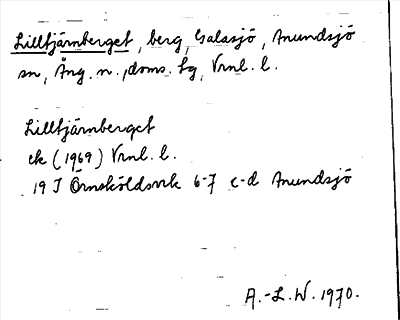 Lilltjärnberget, berg, Galasjö, Anundsjö
sn, Ång. n., doms. sg, Vrnl. l.
Lilltjärnberget
ek (1969) Vrnl. l.
19 J Örnsköldsvik 6-7 c-d Anundsjö
A.-L.W. 1970.